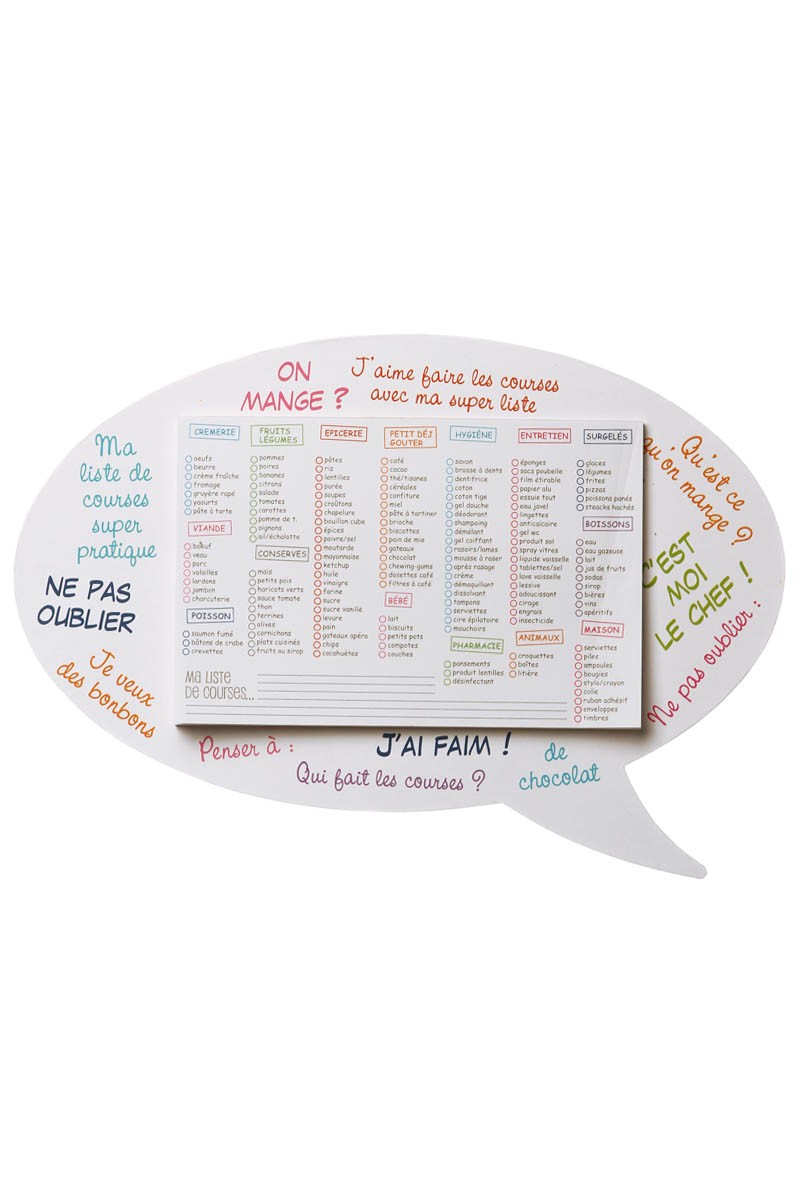 ON
MANGE ?
J'aime faire les courses
avec ma super liste
Ma
liste de
courses
super
pratique
NE PAS
OUBLIER
Je veux
des bonbons
Qu'est ce
qu'on mange ?
C'EST
MOI
LE CHEF !
Ne pas oublier :
Penser à :
J'AI FAIM !
Qui fait les courses ?
de
chocolat
CREMERIE
oeufs
beurre
crème fraîche
fromage
gruyère rapé
yaourts
pâte à tarte
VIANDE
bœuf
veau
porc
volailles
lardons
jambon
charcuterie
POISSON
saumon fumé
bâtons de crabe
crevettes
FRUITS
LÉGUMES
pommes
poires
bananes
citrons
salade
tomates
carottes
pomme de t.
oignons
ail/échalotte
CONSERVES
maïs
petits pois
haricots verts
sauce tomate
thon
terrines
olives
cornichons
plats cuisinés
fruits au sirop
EPICERIE
pâtes
riz
lentilles
purée
soupes
croûtons
chapelure
bouillon cube
épices
poivre/sel
moutarde
mayonnaise
ketchup
huile
vinaigre
farine
sucre
sucre vanillé
levure
pain
gateaux apéro
chips
cacahuètes
PETIT DÉJ
GOUTER
café
cacao
thé/tisanes
céréales
confiture
miel
pâte à tartiner
brioche
biscottes
pain de mie
gateaux
chocolat
chewing-gums
dosettes café
filtres à café
BÉBÉ
lait
biscuits
petits pots
compotes
couches
HYGIÈNE
savon
brosse à dents
dentifrice
coton
coton tige
gel douche
déodorant
shampoing
démelant
gel coiffant
rasoirs/lames
mousse à raser
après rasage
crème
démaquillant
dissolvant
tampons
serviettes
cire épilatoire
mouchoirs
PHARMACIE
pansements
produit lentilles
désinfectant
ENTRETIEN
éponges
sacs poubelle
film étirable
papier alu
essuie tout
eau javel
lingettes
anticalcaire
gel wc
produit sol
spray vitres
liquide vaisselle
tablettes/sel
lave vaisselle
lessive
adoucissant
cirage
engrais
insecticide
ANIMAUX
croquettes
boîtes
litière
SURGELÉS
glaces
légumes
frites
pizzas
poissons panés
steacks hachés
BOISSONS
eau
eau gazeuse
lait
jus de fruits
sodas
sirop
bières
vins
apéritifs
MAISON
serviettes
piles
ampoules
bougies
stylo/crayon
colle
ruban adhésif
enveloppes
timbres
MA LISTE
DE COURSES...